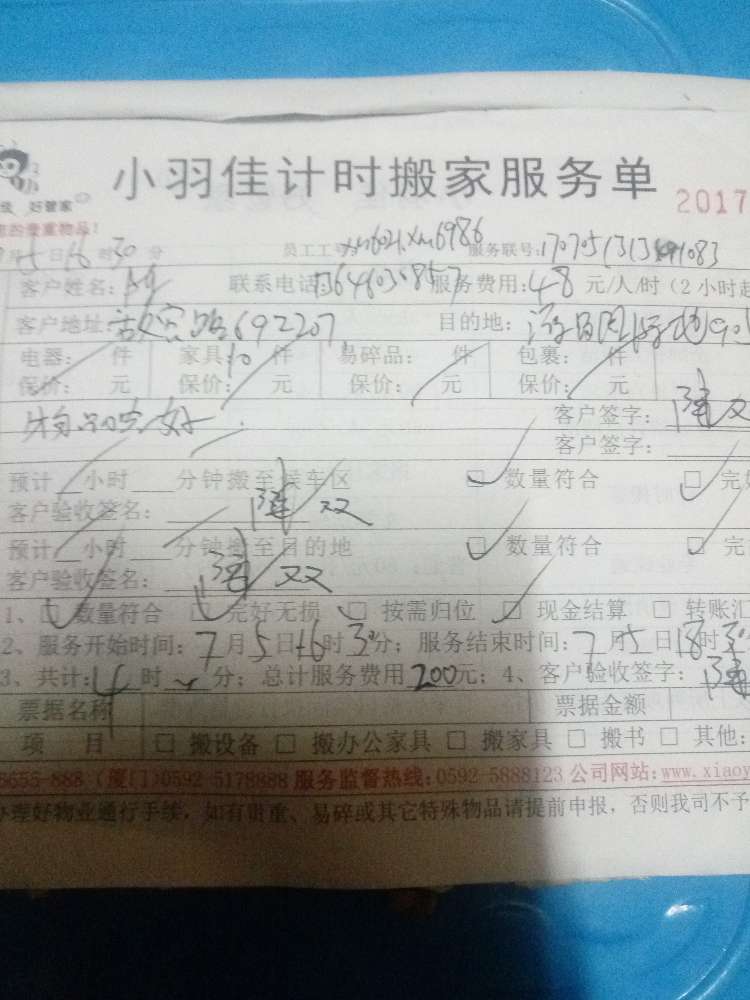 小羽佳计时搬家服务单 2017
好管家
的贵重物品!
月5日16时30分 员工工号: 服务联号:
客户姓名: 联系电话: 服务费用:48元/人/时(2小时起
客户地址: 路692207 目的地:
电器: 件 家具:10件 易碎品: 件 包裹: 件
保价: 元 保价: 元 保价: 元 保价: 元
物品完好
客户签字:
客户签字:
预计__小时___分钟搬至候车区 数量符合 完好
客户验收签名: 双双
预计__小时___分钟搬至目的地 数量符合 完
客户验收签名: 双双
1、 数量符合 完好无损 按需归位 现金结算 转账汇
2、服务开始时间:7月5日16时30分;服务结束时间:7月5日18时30
3、共计:4时 分;总计服务费用200元;4、客户验收签字:
票据名称 票据金额
项 目 □ 搬设备 □ 搬办公家具 □ 搬家具 □ 搬书 □ 其他:
6655-888(厦门)0592-5178888 服务监督热线:0592-5888123 公司网站:www.xiaoy
办理好物业通行手续,如有贵重、易碎或其它特殊物品请提前申报,否则我司不予